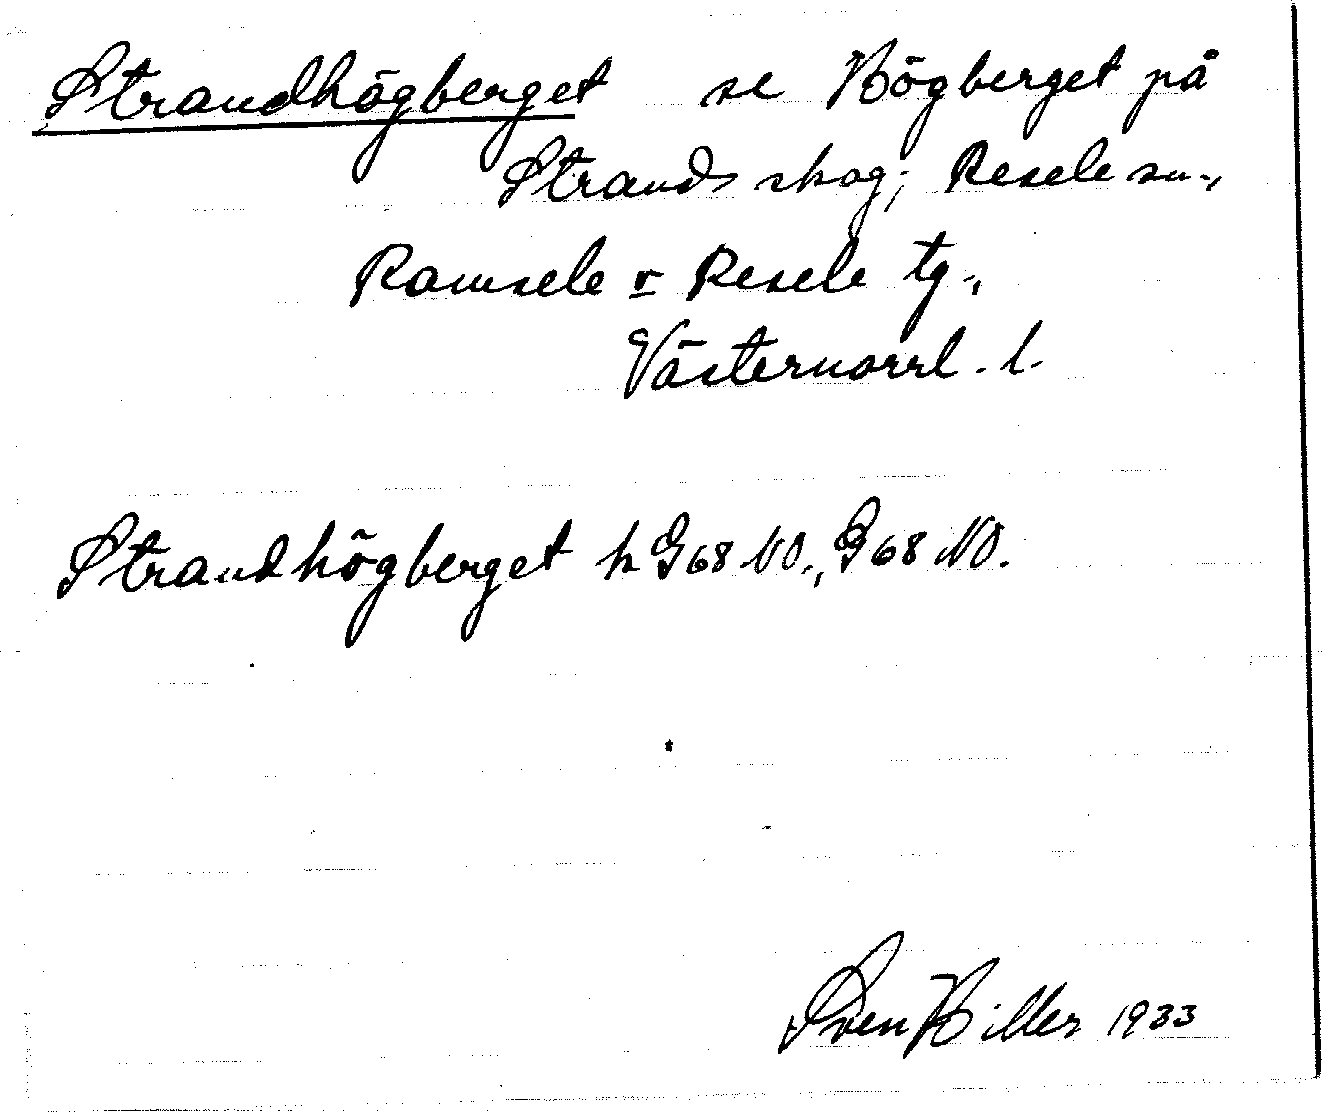 Strandhögberget se Högberget på
Strands skog; Resele sn.,
Ramsele o Resele tg.,
Västernorrl. l.
Strandhögberget h G68 NO., G68 NO.
Sven Hiller 1933